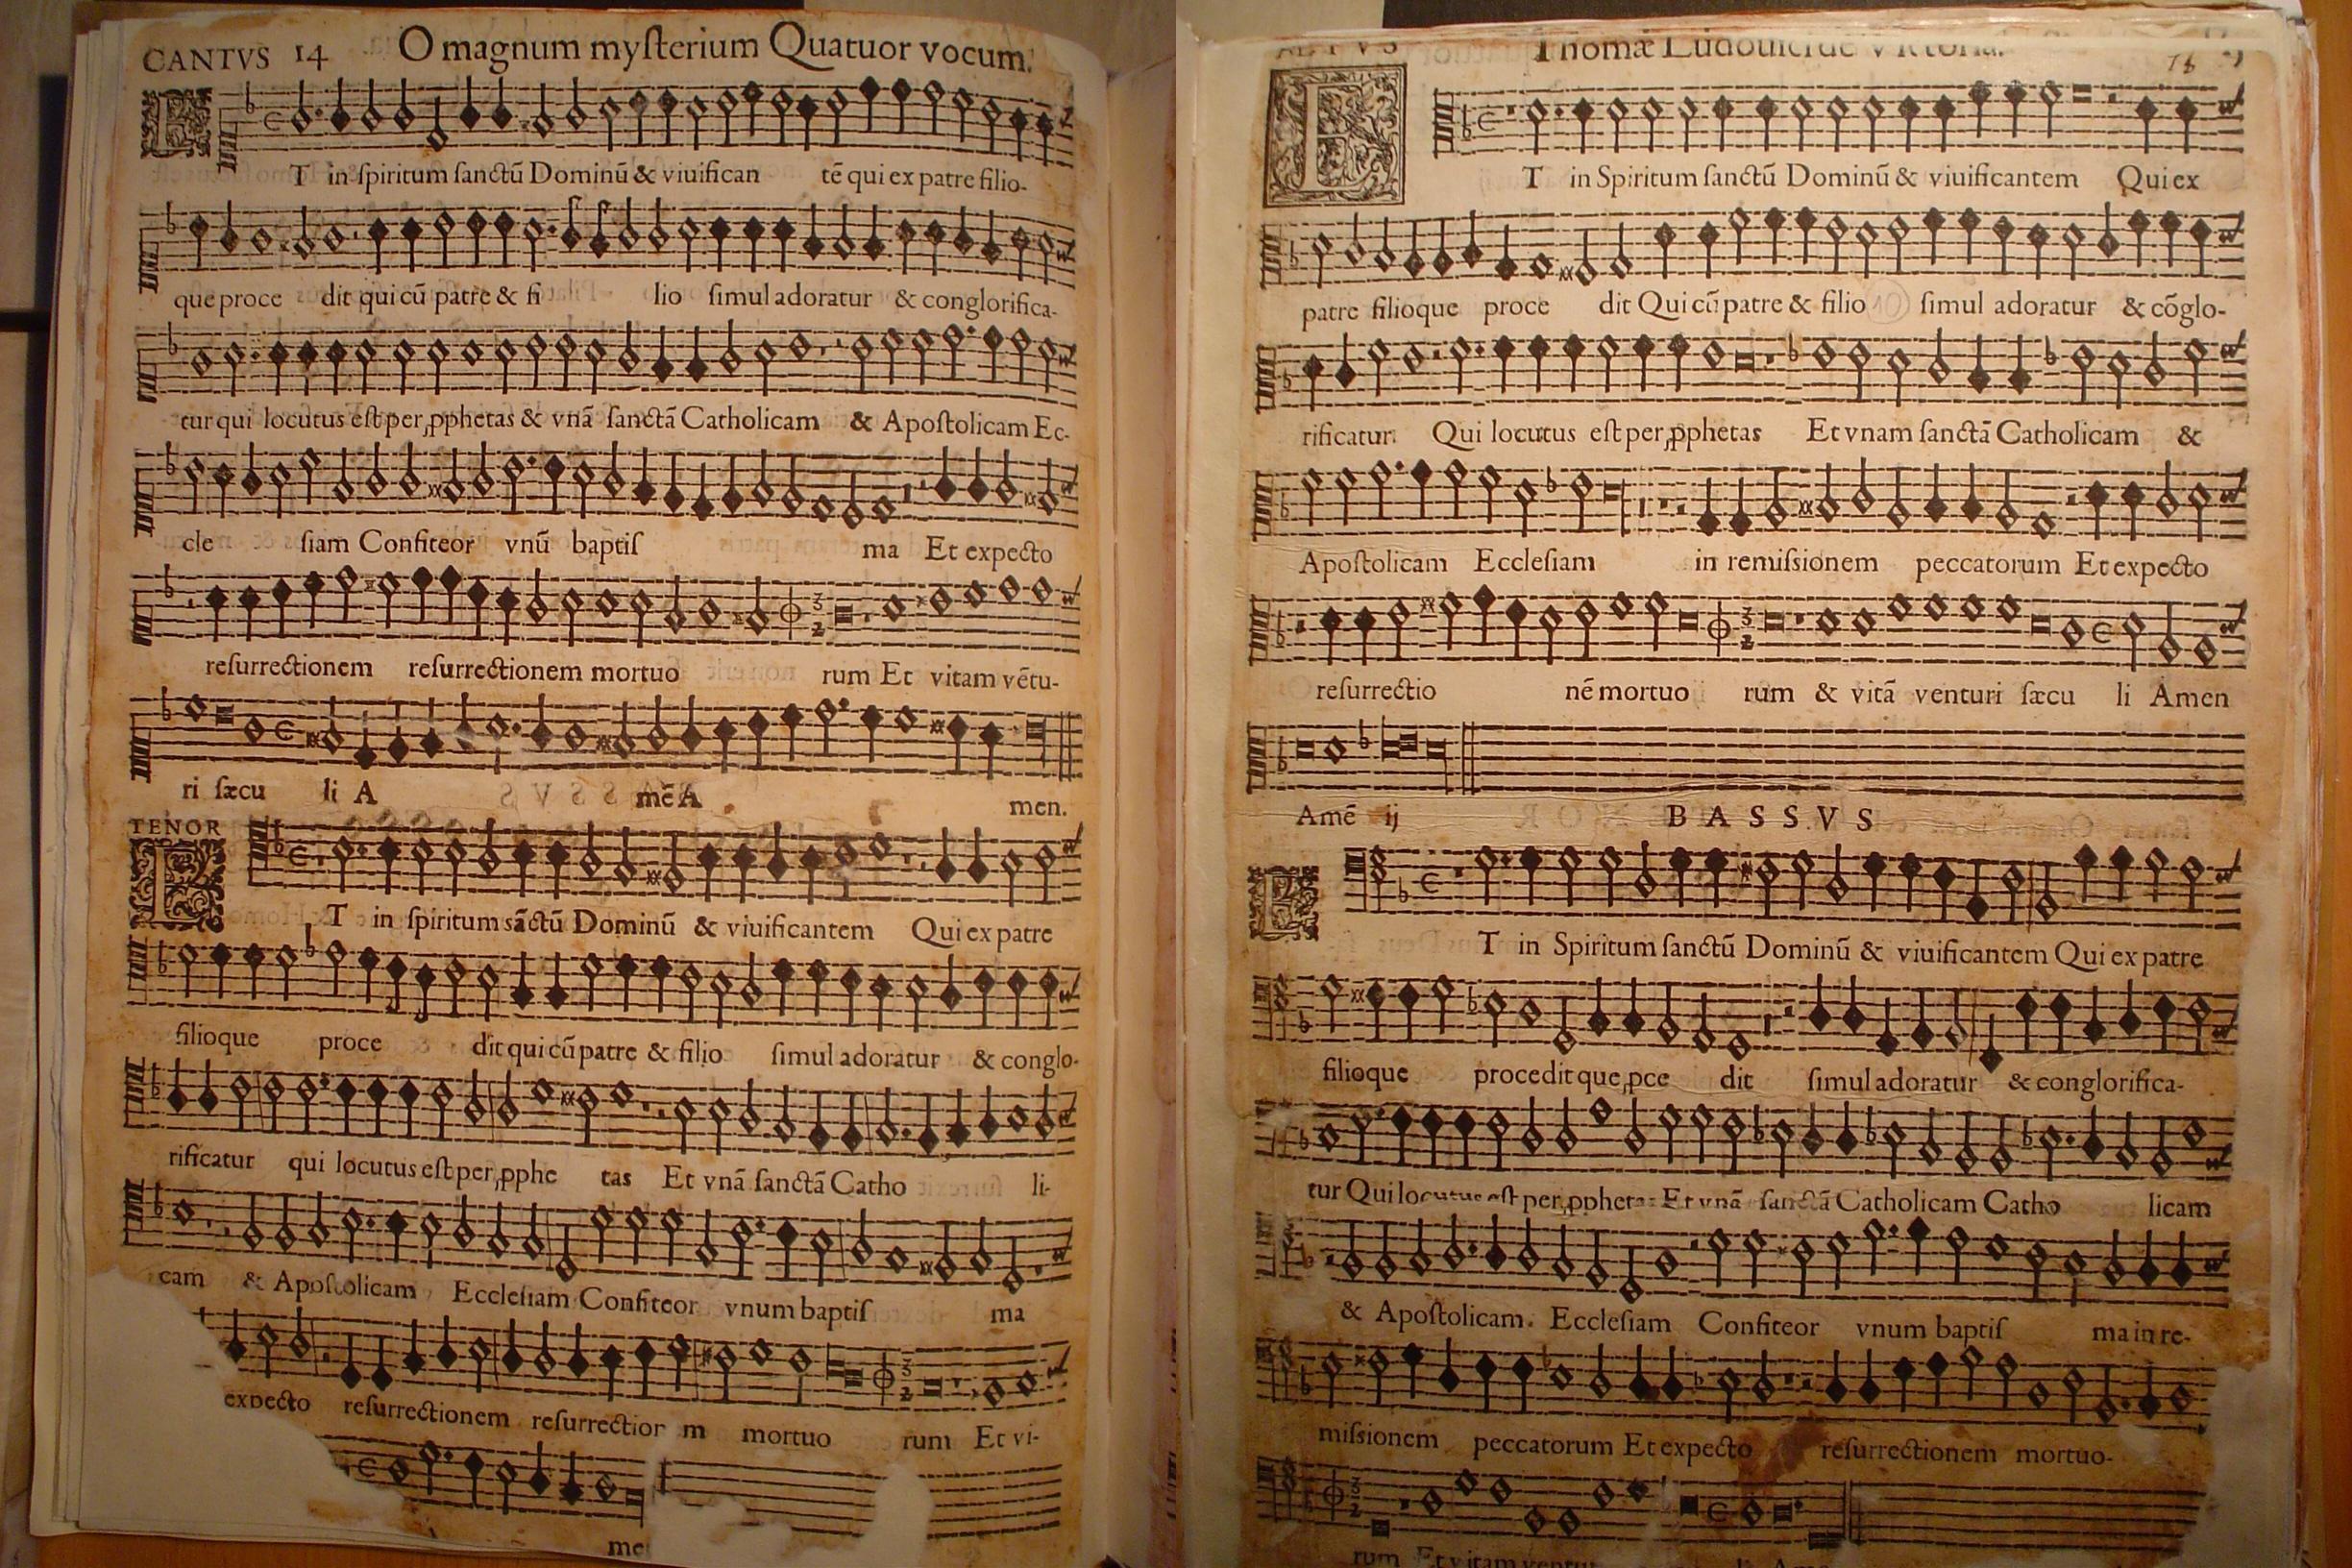 CANTVS 14 O magnum myſterium Quatuor vocum.
ET in ſpiritum ſanctū Dominū & viuifican tē qui ex patre filio-
que proce dit qui cū patre & fi lio ſimul adoratur & conglorifica-
tur qui locutus eſt per ꝓphetas & vnā ſanctā Catholicam & Apoſtolicam Ec-
cle ſiam Confiteor vnū baptiſ ma Et expecto
reſurrectionem reſurrectionem mortuo rum Et vitam vētu-
ri ſæcu li A mē A men.
TENOR
ET in ſpiritum sāctū Dominū & viuificantem Qui ex patre
filioque proce dit qui cū patre & filio ſimul adoratur & conglo-
rificatur qui locutus eſt per ꝓphe tas Et vnā ſanctā Catho li-
cam & Apoſtolicam Eccleſiam Confiteor vnum baptiſ ma
expecto reſurrectionem reſurrectior m mortuo rum Et vi-
me
Thomæ Ludouici de Victoria.
ET in Spiritum ſanctū Dominū & viuificantem Qui ex
patre filioque proce dit Qui cū patre & filio ſimul adoratur & cōglo-
rificatur. Qui locutus eſt per ꝓphetas Et vnam ſanctā Catholicam &
Apoſtolicam Eccleſiam in remiſsionem peccatorum Et expecto
reſurrectio nē mortuo rum & vitā venturi ſæcu li Amen
Amē ij BASSVS
ET in Spiritum ſanctū Dominū & viuificantem Qui ex patre
filioque procedit que ꝓce dit ſimul adoratur & conglorifica-
tur Qui locutus eſt per ꝓphetas Et vnā ſanctā Catholicam Catho licam
& Apoſtolicam. Eccleſiam Confiteor vnum baptiſ ma in re-
miſsionem peccatorum Et expecto reſurrectionem mortuo-
rum Et vitam